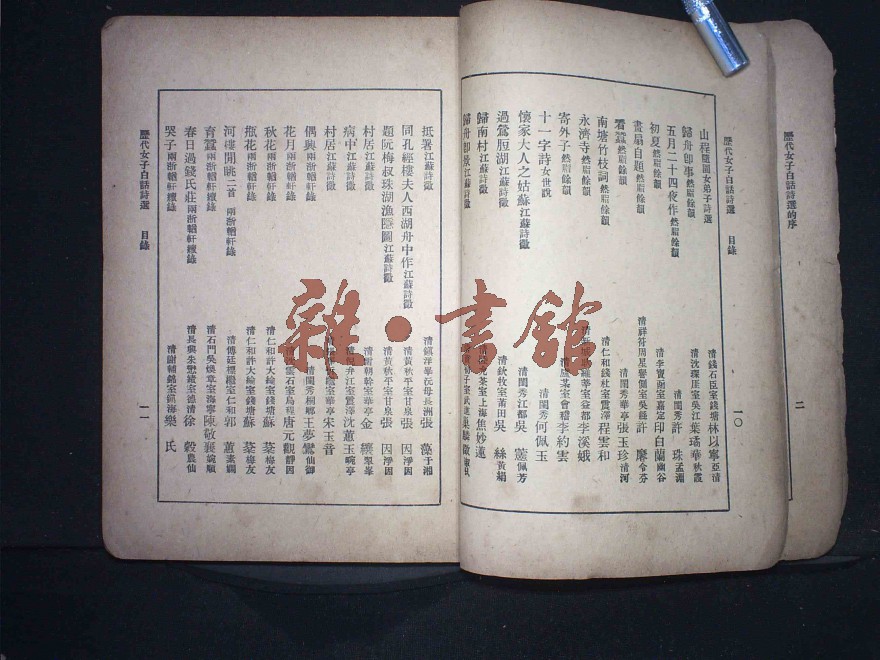 歷代女子白話詩選的序
二
歷代女子白話詩選 目錄
一〇
山程 隨園女弟子詩選 清錢石臣室錢塘林以寧亞清
歸舟卽事 然脂餘韻 清沈 室吳江葉璚華秋霞
五月二十四夜作 然脂餘韻 清閨秀許 珠孟淵
初夏 然脂餘韻 清李寶 室嘉定印白蘭幽谷
畫扇自題 然脂餘韻 清祥符周星譽側室吳縣許 廖令芬
看蠶 然脂餘韻 清閨秀華亭張玉珍清河
南塘竹枝詞 然脂餘韻 清仁和錢杜室賈澤程雲和
永濟寺 然脂餘韻 室益都李溪娥
寄外子 然脂餘韻 清 某室會稽李約雲
十一字詩 女世說 清閨秀何佩玉
懷家大人之姑蘇 江蘇詩徵 清閨秀江都吳 藍佩芳
過鴛脰湖 江蘇詩徵 清欽牧室莆田吳 絲黃絹
歸南村 江蘇詩徵 室上海焦妙蓮
歸舟卽景 江蘇詩徵
抵署 江蘇詩徵 清鎭洋畢沅母長洲張 藻于湘
同孔經樓夫人西湖舟中作 江蘇詩徵 清黃秋平室甘泉張 因淨因
題阮梅叔珠湖漁隱圖 江蘇詩徵 清黃秋平室甘泉張 因淨因
村居 江蘇詩徵 清 朝幹室華亭金 纕翠峯
病中 江蘇詩徵 清倪弁江室賈澤沈蕙玉畹亭
村居 江蘇詩徵 室華亭宋玉音
偶興 兩浙輶軒錄 清閨秀桐鄉王夢鸞仙御
花月 兩浙輶軒錄 石室烏程唐元觀靜因
秋花 兩浙輶軒錄 清仁和許大綸室錢塘蘇 棻梅友
瓶花 兩浙輶軒錄 清仁和許大綸室錢塘蘇 棻梅友
河樓閒眺二首 兩浙輶軒錄 清傅廷標繼室仁和郭 蕙素嫻
育蠶 兩浙輶軒續錄 清石門吳煥章室海寧陳敬襄婉順
春日過錢氏莊 兩浙輶軒續錄 清長興朱 室德清徐 毅農仙
哭子 兩浙輶軒續錄 清謝輔銘室鎭海樂 氏
歷代女子白話詩選 目錄
一一
雜·書館